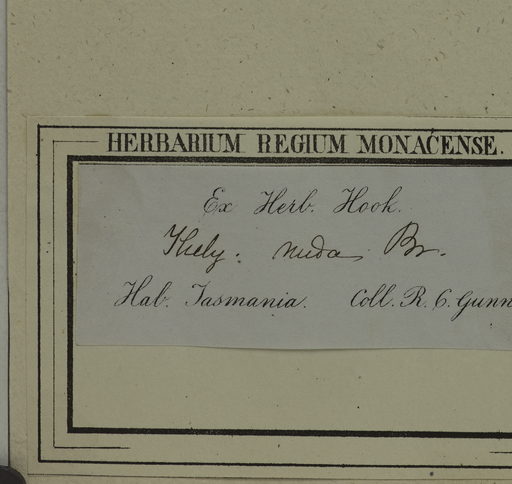 HERBARIUM REGIUM MONACENSE.
Ex Herb. Hook.
Thely. nuda Br.
Hab. Tasmania. Coll. R. C. Gunn